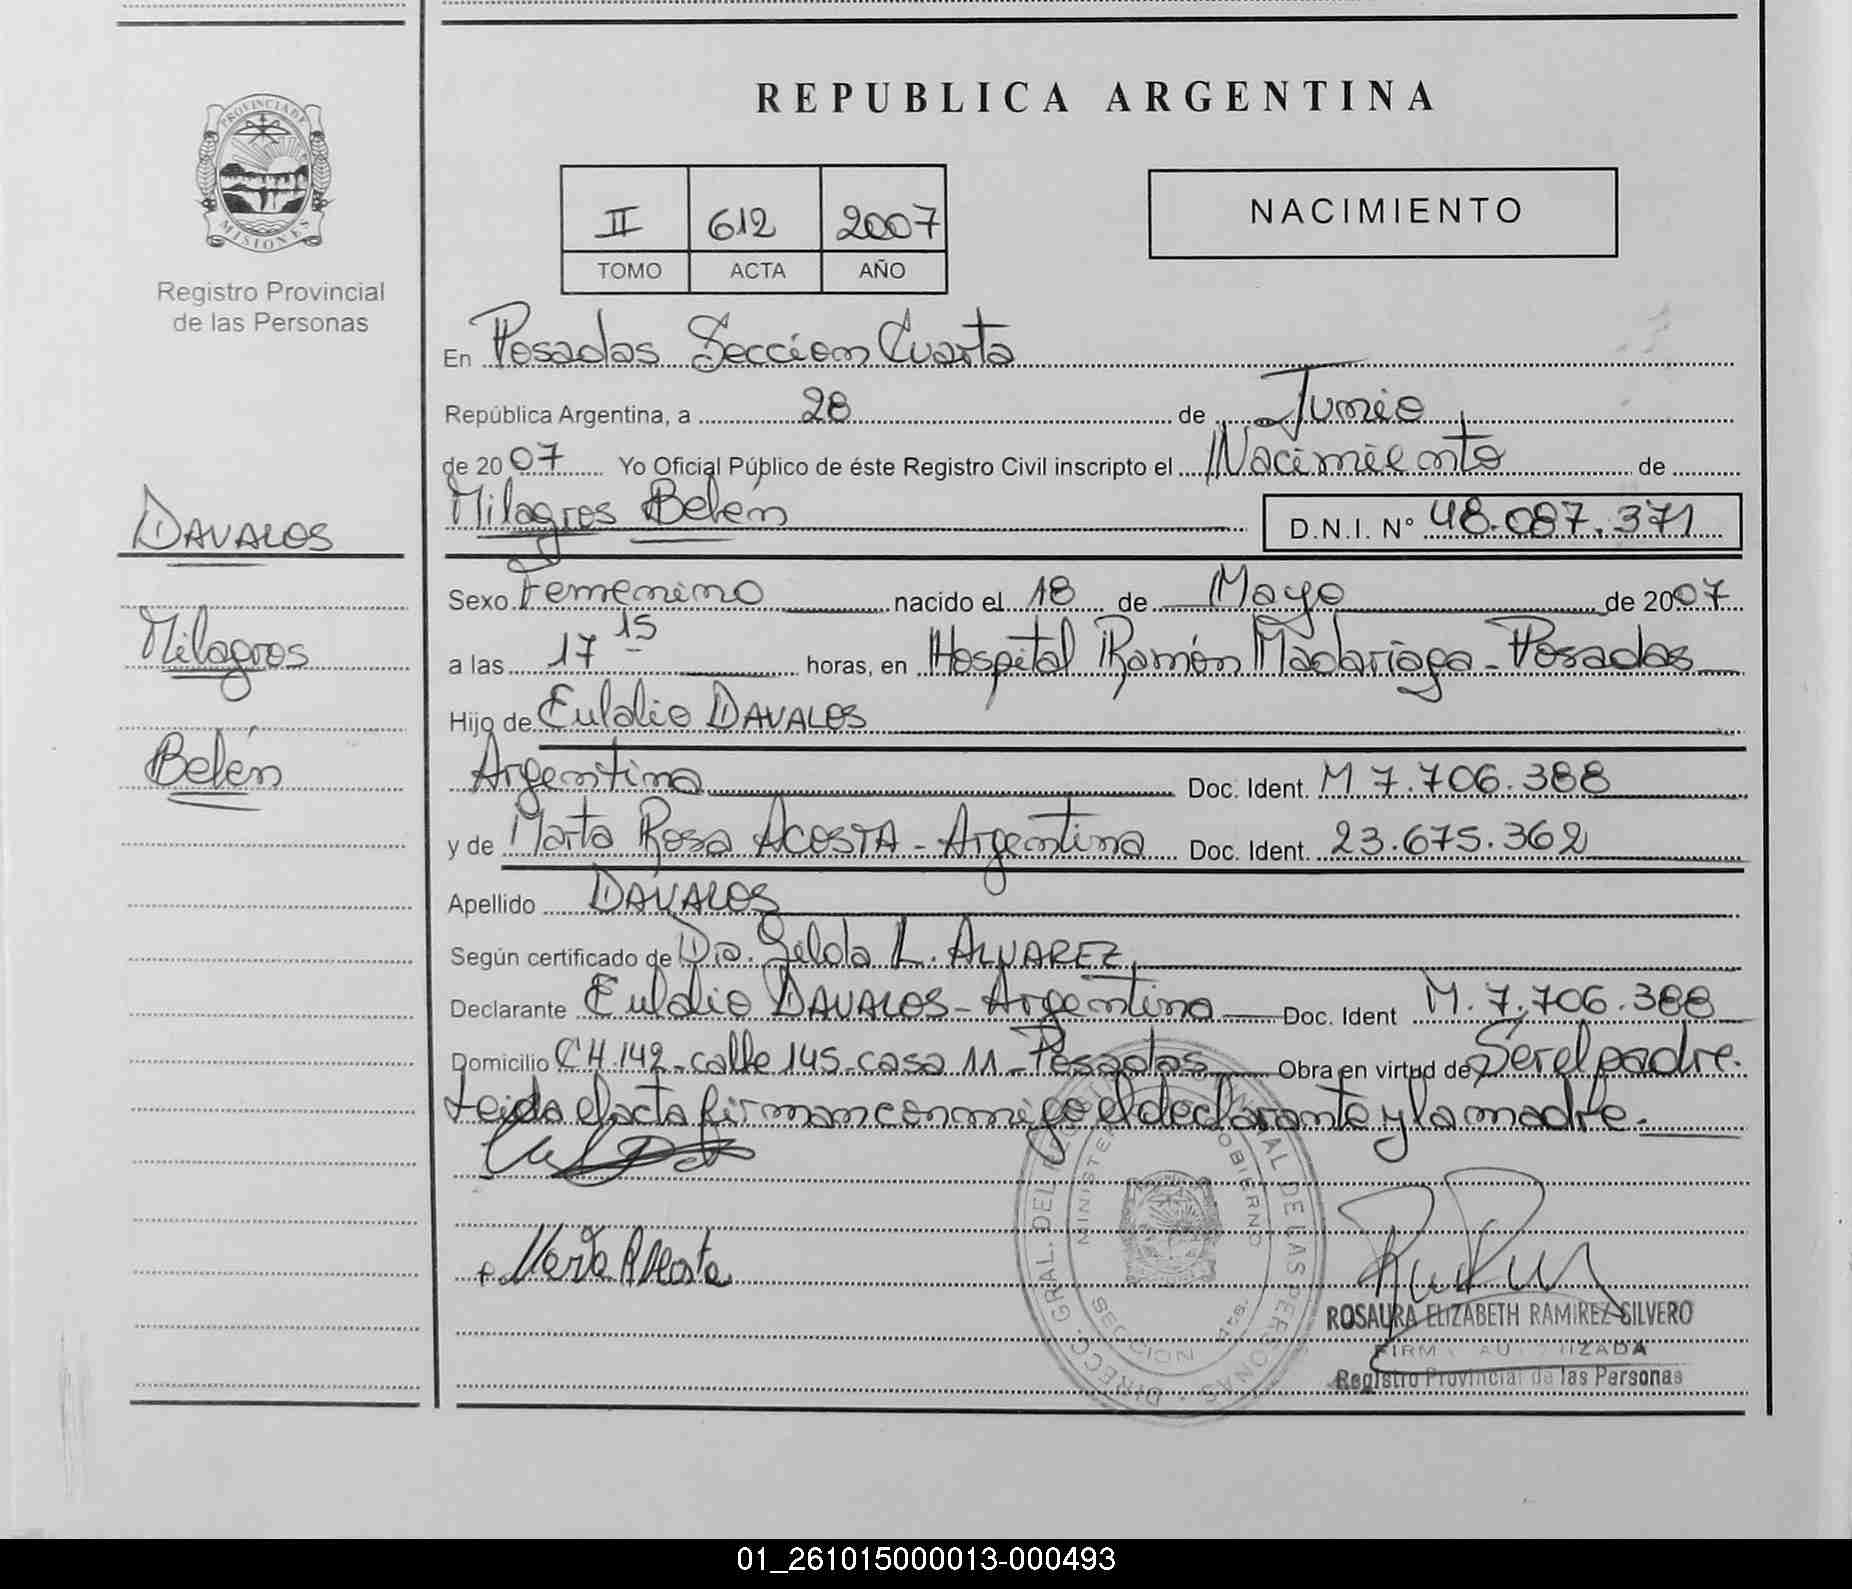 REPUBLICA ARGENTINA
PROVINCIA DE MISIONES
Registro Provincial
de las Personas
II 612 2007
TOMO ACTA AÑO
NACIMIENTO
En Posadas Seccion Cuarta
República Argentina, a 28 de Junio
de 2007 Yo Oficial Público de éste Registro Civil inscripto el Nacimiento de
Milagros Belén D.N.I. N° 48.087.371
DAVALOS
Milagros
Belén
Sexo Femenino nacido el 18 de Mayo de 2007
a las 17 15 horas, en Hospital Ramón Madariaga - Posadas
Hijo de Eulalio DAVALOS
Argentina Doc. Ident. M 7.706.388
y de Marta Rosa ACOSTA - Argentina Doc. Ident. 23.675.362
Apellido DAVALOS
Según certificado de Dra. Gilda L. ALVAREZ
Declarante Eulalio DAVALOS - Argentina Doc. Ident M. 7.706.388
Domicilio CH.142 - calle 145 - casa 11 - Posadas Obra en virtud de Ser el padre.
Leida el acta firman conmigo el declarante y la madre.
Marta R Acosta
ROSAURA ELIZABETH RAMIREZ SILVERO
FIRMA AUTORIZADA
Registro Provincial de las Personas
01_261015000013-000493